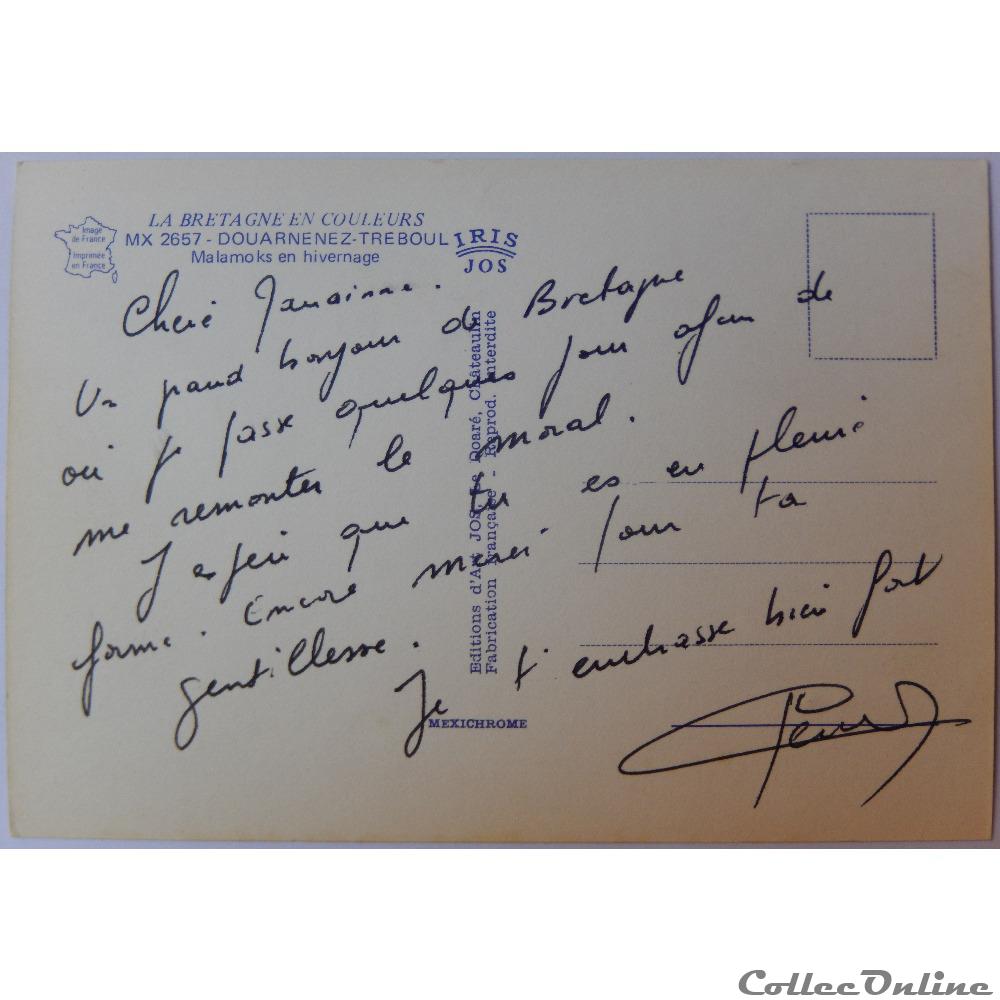 LA BRETAGNE EN COULEURS
MX 2657 - DOUARNENEZ-TREBOUL
Malamoks en hivernage
Image
de France
Imprimée
en France
IRIS
JOS
Editions d'Art JOS Le Doaré, Châteaulin
Fabrication Française - Reprod. Interdite
MEXICHROME
Chère
Un grand bonjour de Bretagne
où je passe quelques jour afin de
me remonter le moral.
J'espère que tu es en pleine
forme. Encore merci pour ta
gentillesse.
Je t'embrasse bien fort
CollecOnline